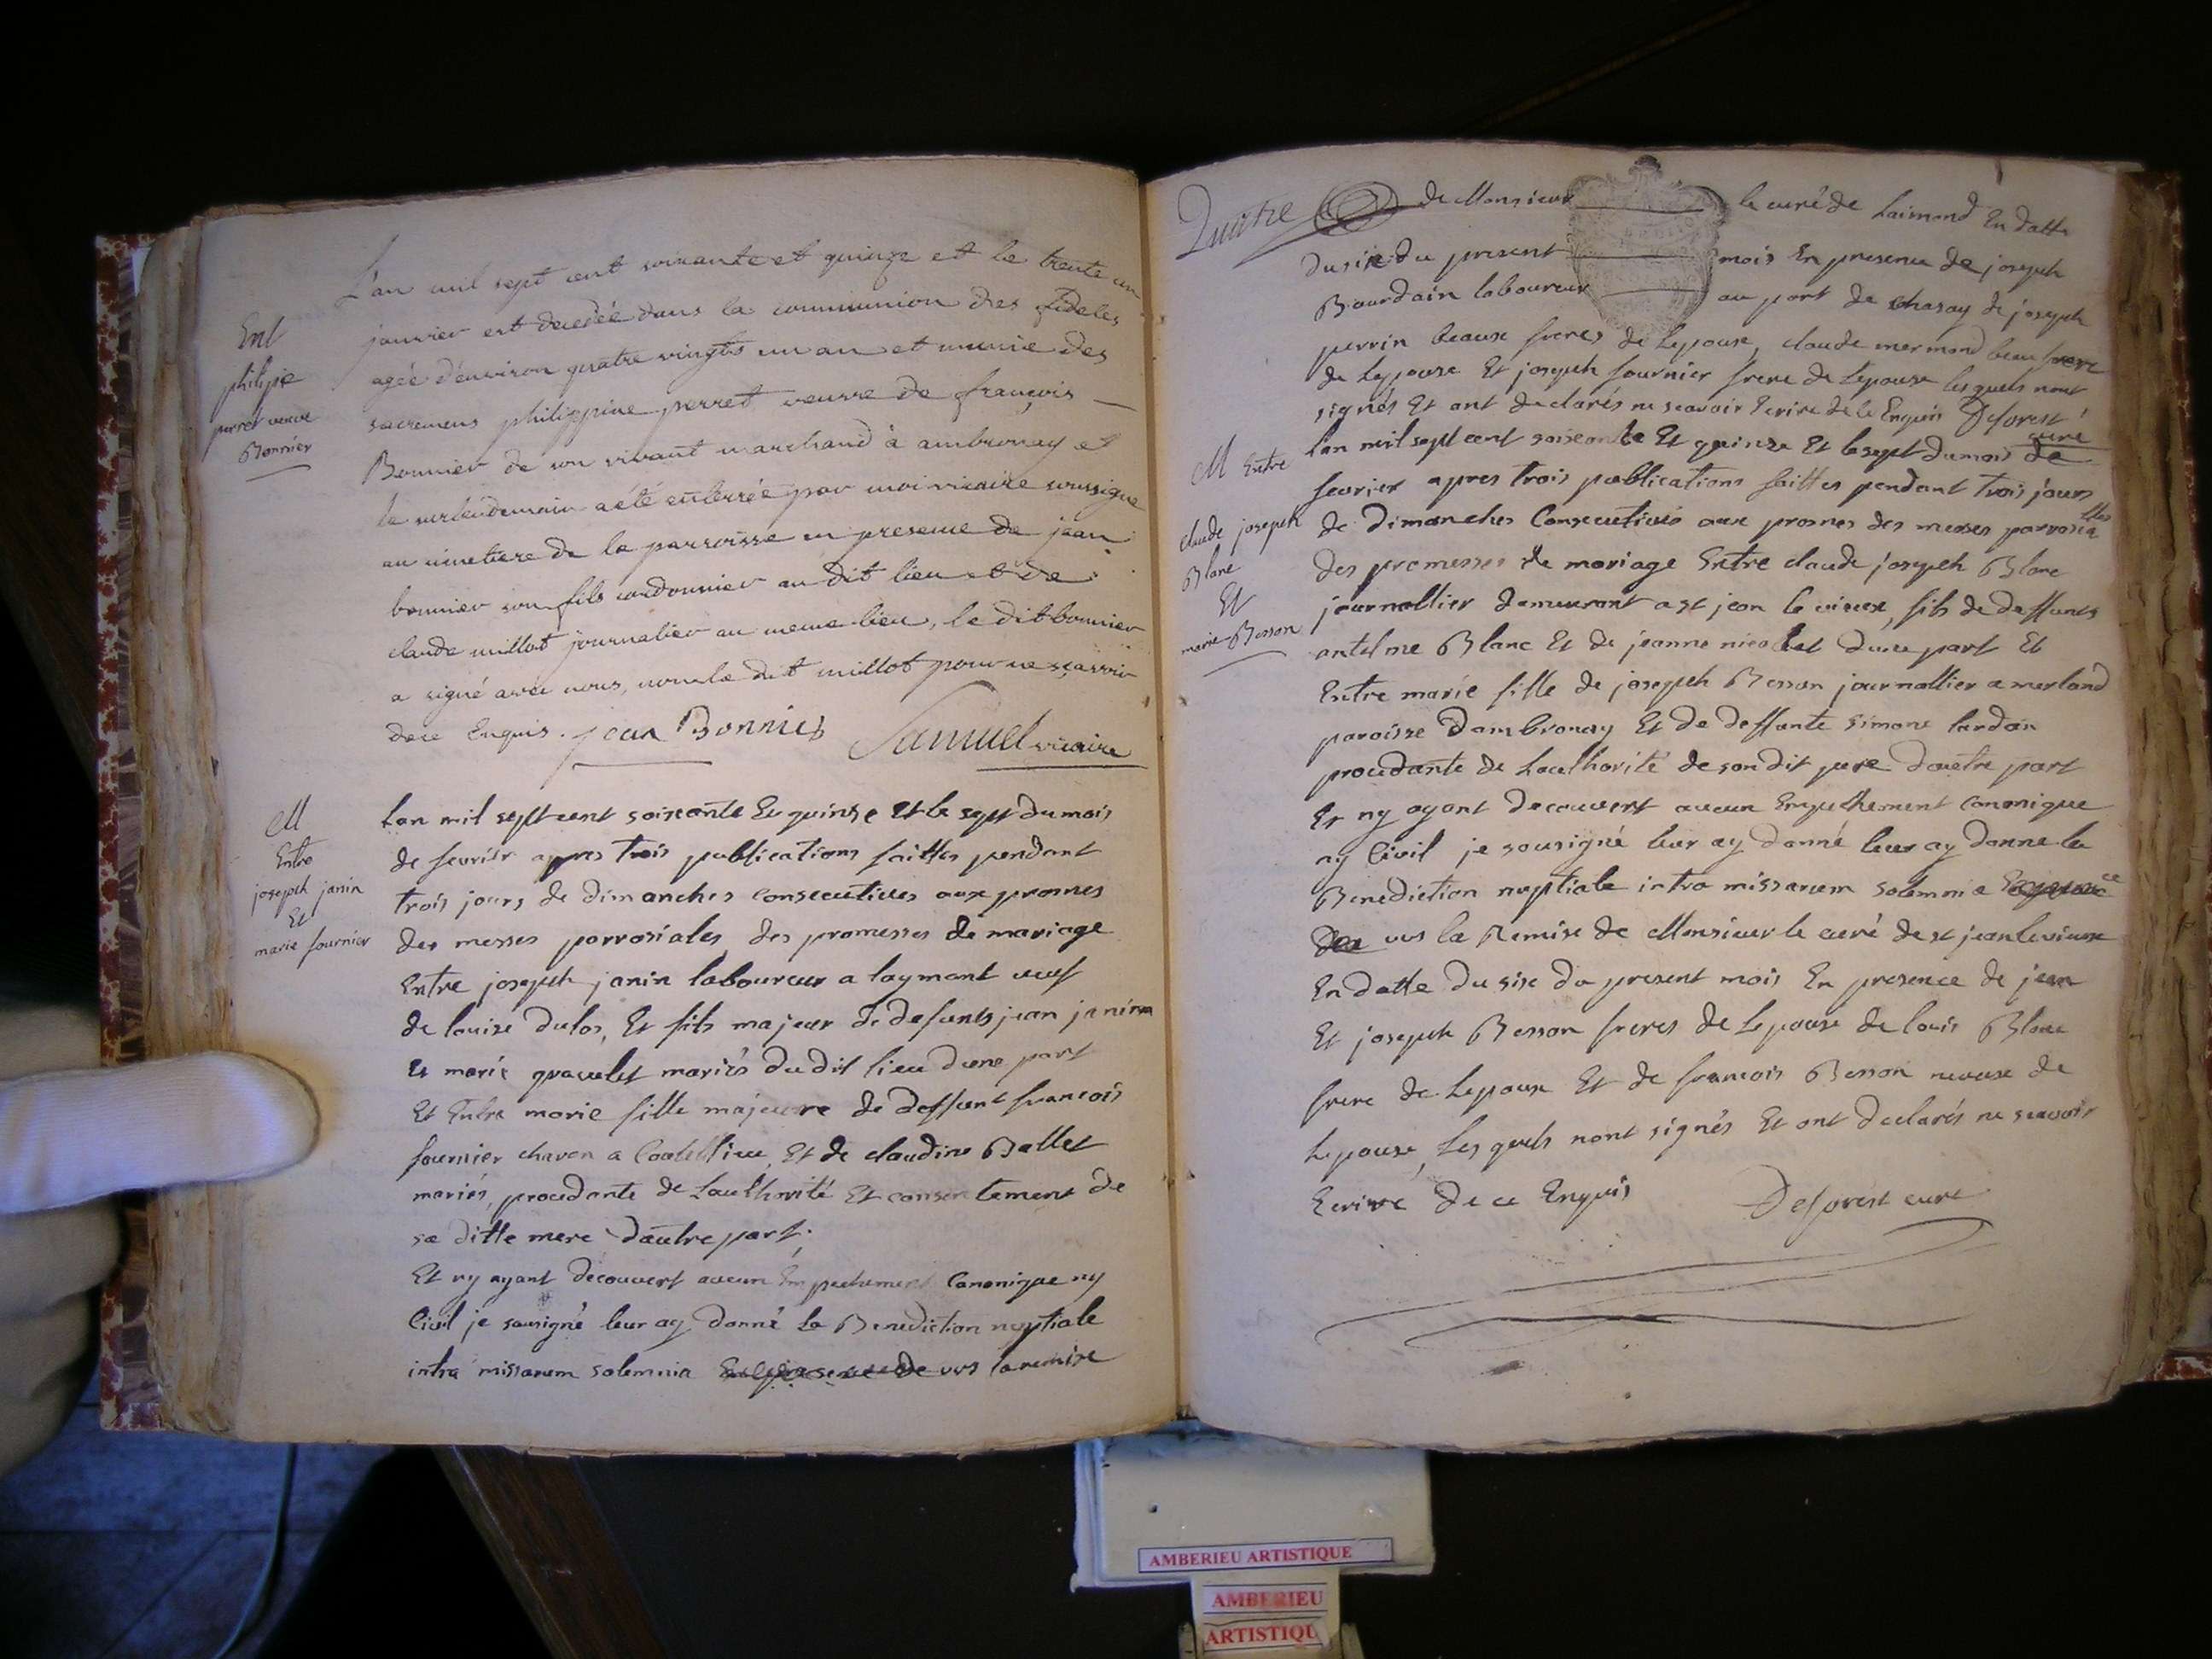 Ent
philipie
perret veuve
Bonnier
L'an mil sept cent soixante et quinze et le trente un
janvier est decedée dans la communion des fideles
agée d'environ quatre vingts un an et munie des
sacremens philippine perret veuve de françois
Bonnier de son vivant marchand à ambronay et
le surlendemain a été enterrée par moi vicaire soussigne
au cimetiere de la parroisse en presence de jean
bonnier son fils cordonnier au dit lieu et de
claude millot journalier au meme lieu, le dit bonnier
a signé avec nous, non le dit millot pour ne sçavoir
de ce Enquis. jean Bonnier Samuel vicaire
M
Entre
joseph janin
Et
marie fournier
Lan mil sept cent soixante Et quinze Et le sept du mois
de fevrier apres trois publications faittes pendant
trois jours de dimanches consecutives aux prosnes
des messes parrosiales des promesses de mariage
Entre joseph janin laboureur a laymont veuf
de louise dulos, Et fils majeur de defunts jean janin
Et marie gravelet mariés du dit lieu dune part
Et Entre marie fille majeure de deffunt francois
fournier charon a Coutellieu, Et de claudine Ballet
mariés, procedante de Lauthorité Et consentement de
sa ditte mere dautre part.
Et ny ayant decouvert aucun Empechement Canonique ny
Civil je sousigné leur ay donné la Benediction nuptiale
intra missarum solemnia En presence de vus la remise
Quatre de Monsieur le curé de Laimond En datte
du six du present mois En presence de joseph
Bourdain laboureur au port de chasay de joseph
perrin beaux freres de Lepouse, claude mermond beau frere
de Lepouse Et joseph fournier frere de Lepouse lesquels nont
signés Et ont declarés ne scavoir Ecrire de ce Enquis Deforest
curé
M Entre
claude joseph
Blanc
Et
marie Besson
Lan mil sept cent soixante Et quinze Et le sept du mois de
fevrier apres trois publications faittes pendant trois jours
de Dimanches Consecutives aux prosnes des messes parrosialles
des promesses de mariage Entre claude joseph Blanc
journallier demeurant a st jean le vieux, fils de deffunts
antelme Blanc Et de jeanne nicollet dune part Et
Entre marie fille de joseph Besson journallier a merland
paroisse dambronay Et de deffunte simone lardon
procedante de Lauthorité de son dit pere dautre part
Et ny ayant decouvert aucun Empechement Canonique
ny Civil je sousigné leur ay donné leur ay donne la
Benediction nuptiale intra missarum solemnia
vus la Remise de Monsieur le curé de st jean levieux
En datte du six du present mois En presence de jean
Et joseph Besson freres de Lepouse de louis Blanc
frere de Lepoux Et de francois Besson neveux de
Lepouse, Les quels nont signés Et ont declarés ne scavoir
Ecrire de ce Enquis Deforest curé
AMBERIEU ARTISTIQUE
AMBERIEU
ARTISTIQU